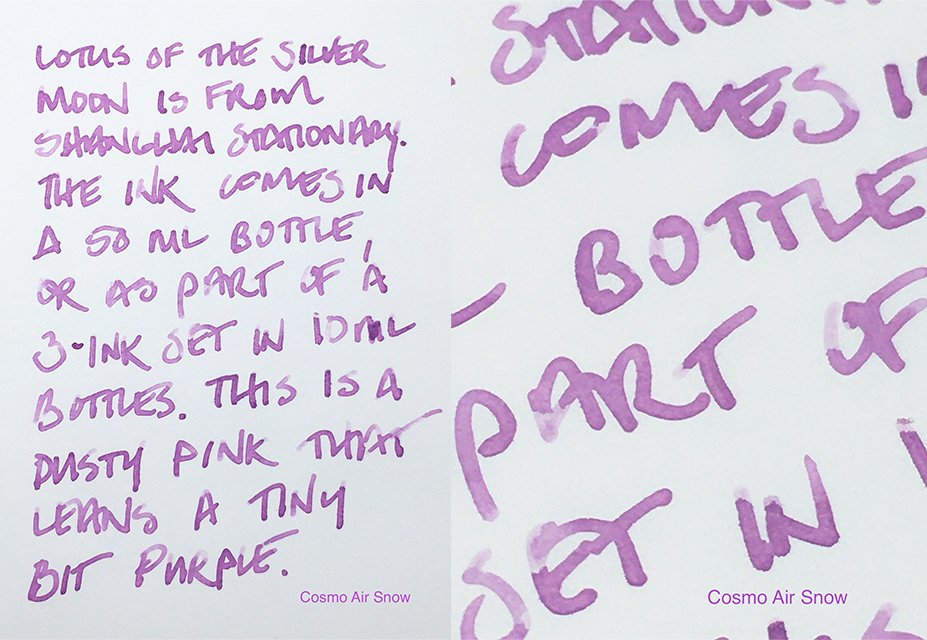 LOTUS OF THE SILVER
MOON IS FROM
SHANGHAI STATIONARY.
THE INK COMES IN
A 50 ML BOTTLE,
OR AS PART OF A
3-INK SET IN 10 ML
BOTTLES. THIS IS A
DUSTY PINK THAT
LEANS A TINY
BIT PURPLE.
Cosmo Air Snow
STATIONAR
COMES IN
BOTTLE
PART OF
SET IN 1
Cosmo Air Snow